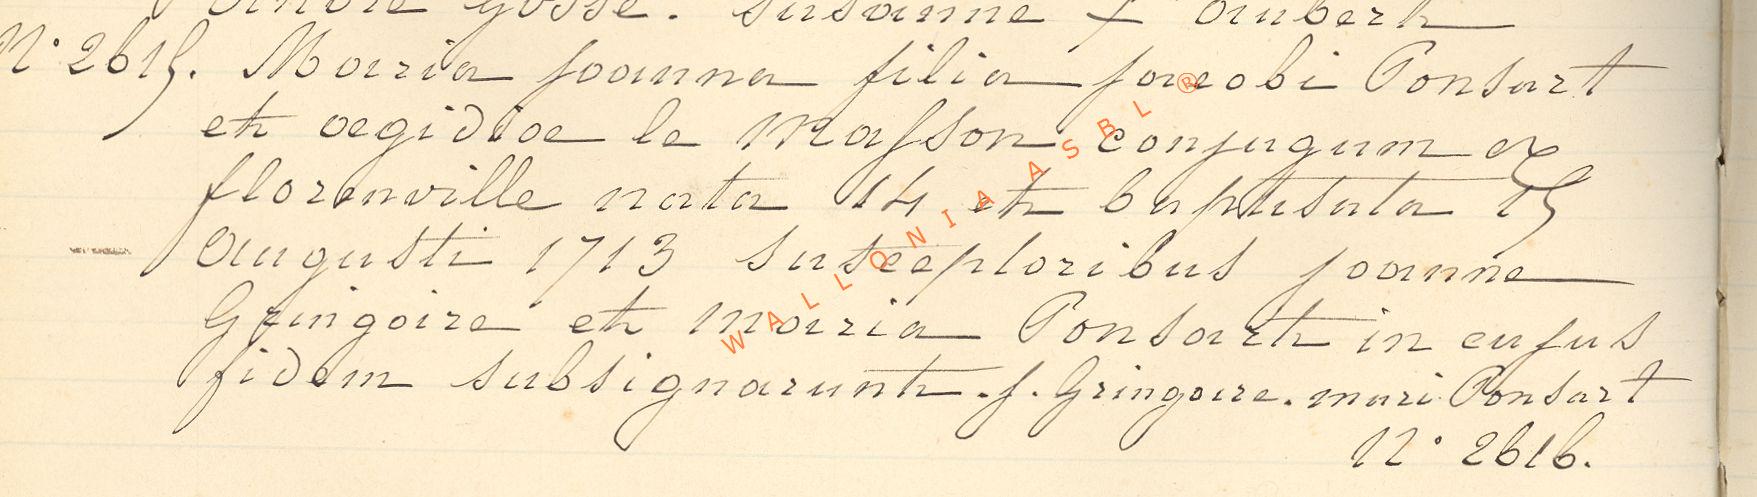 André Gosse. Susanne + Lambert
N° 2615. Maria Joanna filia Jacobi Ponsart
et aegidiae le Masson conjugum ex
florenville nata 14 et baptisata 15
Augusti 1713 susceptoribus joanne
Gringoire et Maria Ponsart in cujus
fidem subsignarunt. J. Gringoire. mari Ponsart
N° 2616.
WALLONIA ASBL ®